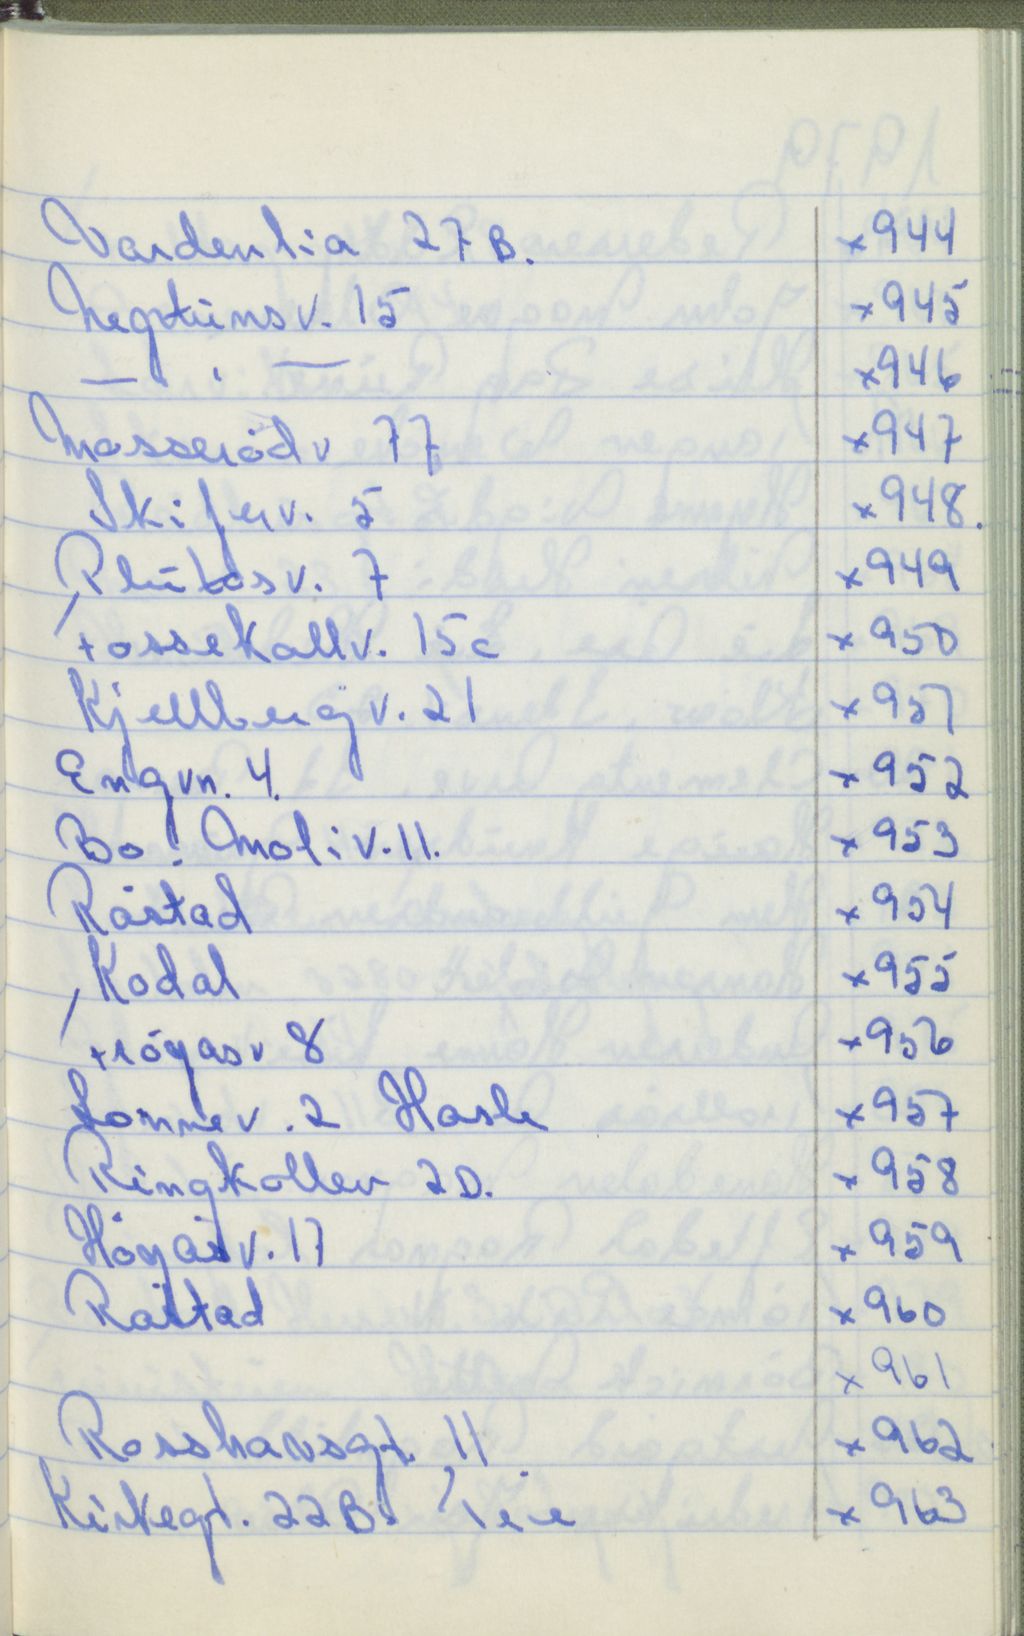 Vardenlia 27 B. x 944
Neptünsv. 15 x 945
— " — x 946
Mosserödv 77 x 947
Skiferv. 5 x 948.
Plütosv. 7 x 949
Fossekallv. 15c x 950
Kjellbergv. 21 x 951
Engvn. 4. x 952
Bo. Moliv. 11. x 953
Råstad x 954
Kodal x 955
Högåsv 8 x 956
Lonnev. 2 Hasle x 957
Ringkollev 2D. x 958
Högåsv. 17 x 959
Råstad x 960
x 961
Rosshavsgt. 11 x 962
Kirkegt. 22B. x 963